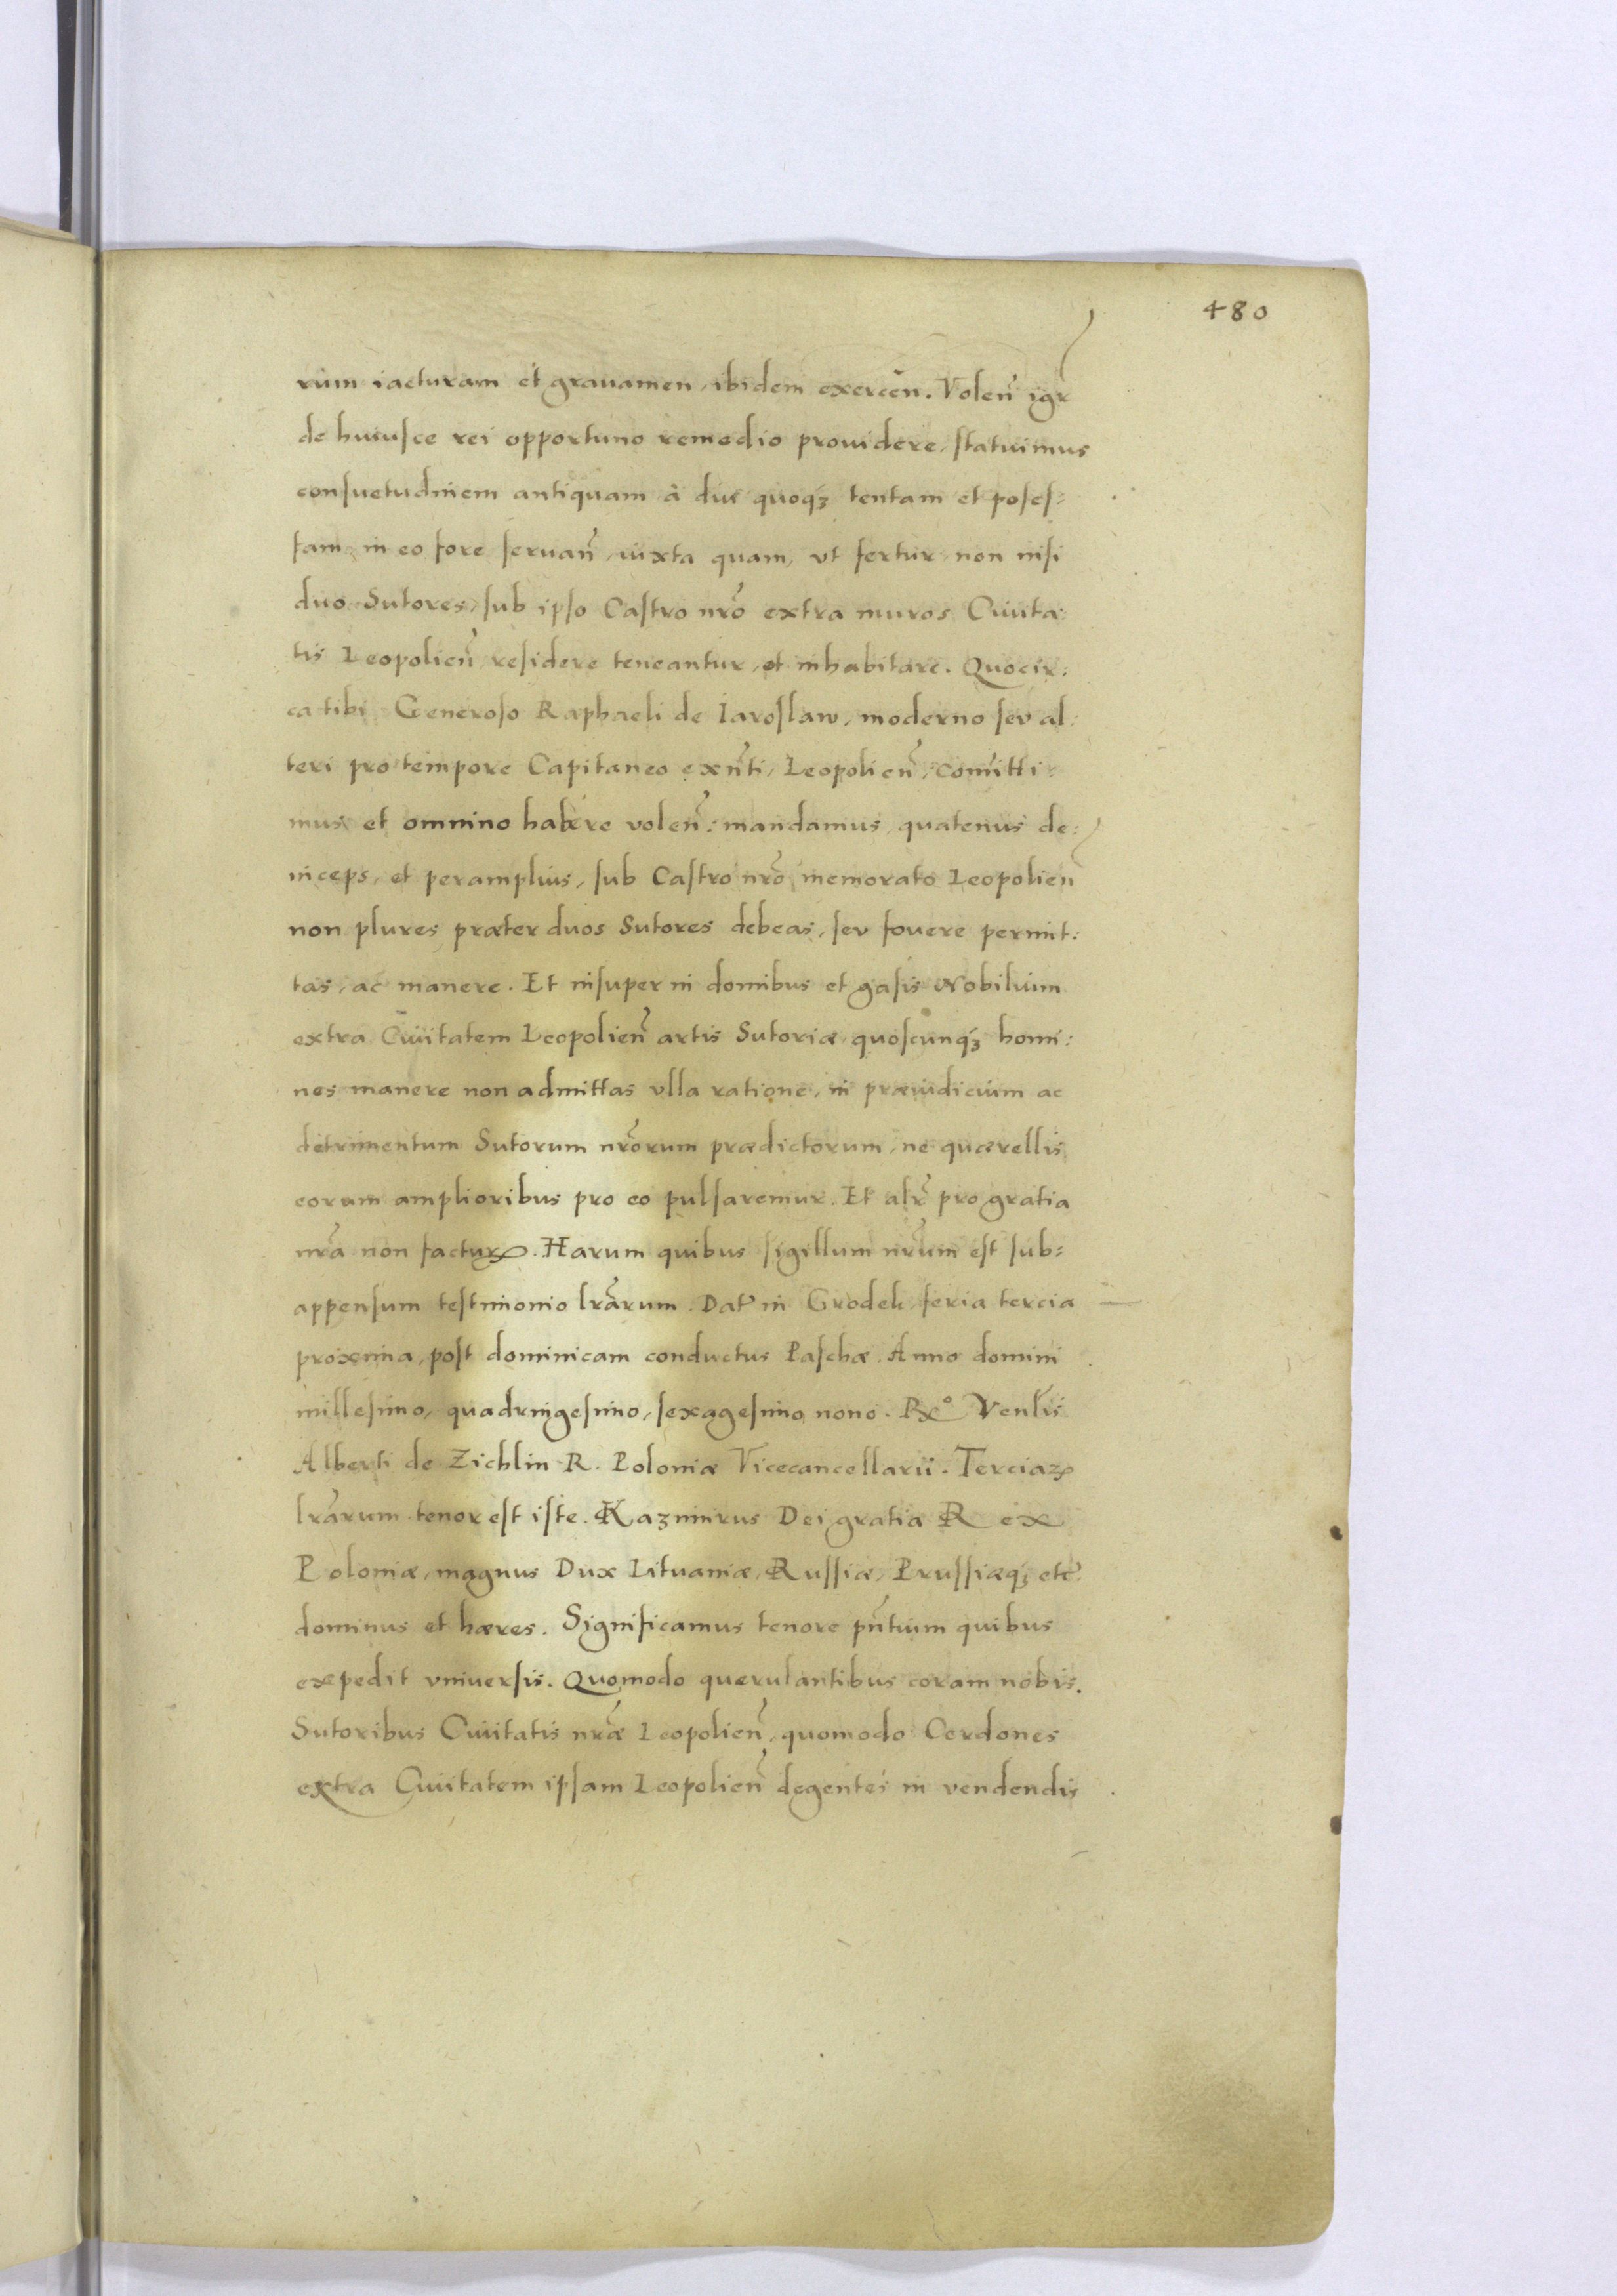 480
rum iacturam et grauamen, ibidem exercen̄. Volen̄ igr̄
de huiusce rei opportuno remedio prouidere, statuimus
consuetudinem antiquam à diu quoqȝ tentam et poses:
sam, in eo fore seruan̄, iuxta quam, vt fertur non nisi
duo Sutores, sub ipso Castro nr̄o extra muros Ciuita:
tis Leopolien̄, residere teneantur, et inhabitare. Quocir:
ca tibi Generoso Raphaeli de Iaroslaw, moderno seu al:
teri pro tempore Capitaneo exn̄ti, Leopolien̄, com̄itti:
mus et omnino habere volen̄: mandamus, quatenus de:
inceps, et peramplius, sub Castro nr̄o memorato Leopolien̄
non plures præter duos Sutores debeas, seu fouere permit:
tas, ac manere. Et insuper in domibus et gasis Nobilium
extra Ciuitatem Leopolien̄ artis Sutoriæ, quoscunqȝ homi:
nes manere non admittas vlla ratione, in præiudicium ac
detrimentum Sutorum nr̄orum prædictorum, ne quærellis
eorum amplioribus pro eo pulsaremur. Et alr̄ pro gratia
nr̄a non facturꝝ. Harum quibus sigillum nr̄um est sub:
appensum testimonio lr̄arum. Dat̄ in Grodek feria tercia
proxima, post dominicam conductus Paschæ. Anno domini
millesimo, quadringesimo, sexagesimo nono. Rx° Venlis
Alberti de Zichlin R. Poloniæ Vicecancellarii. Terciaꝝ
lr̄arum tenor est iste. Kazimirus Dei gratia Rex
Poloniæ, magnus Dux Lituaniæ, Russiæ, Prussiæqȝ etc̄.
dominus et hæres. Significamus tenore pn̄tium quibus
expedit vniuersis. Quomodo quærulantibus coram nobis.
Sutoribus Ciuitatis nr̄æ Leopolien̄, quomodo Cerdones
extra Ciuitatem ipsam Leopolien̄ degentes in vendendis